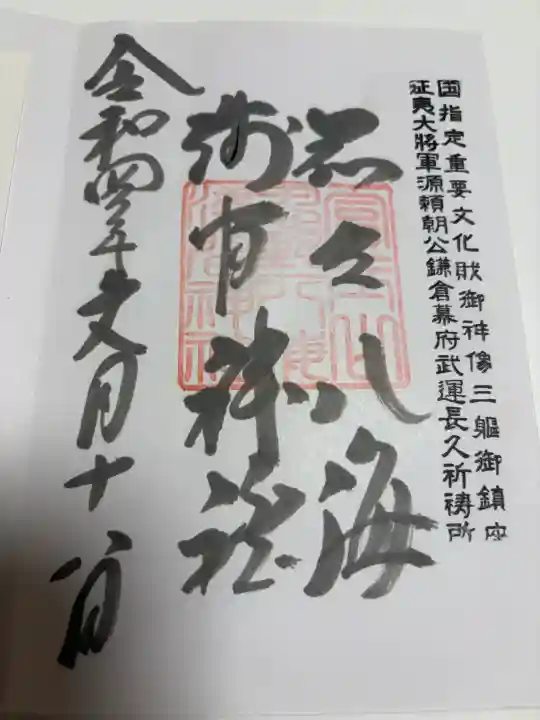 国指定重要文化財御神像三軀御鎮座
征夷大將軍源頼朝公鎌倉幕府武運長久祈祷所
八海
神社
令和四年文月十八日